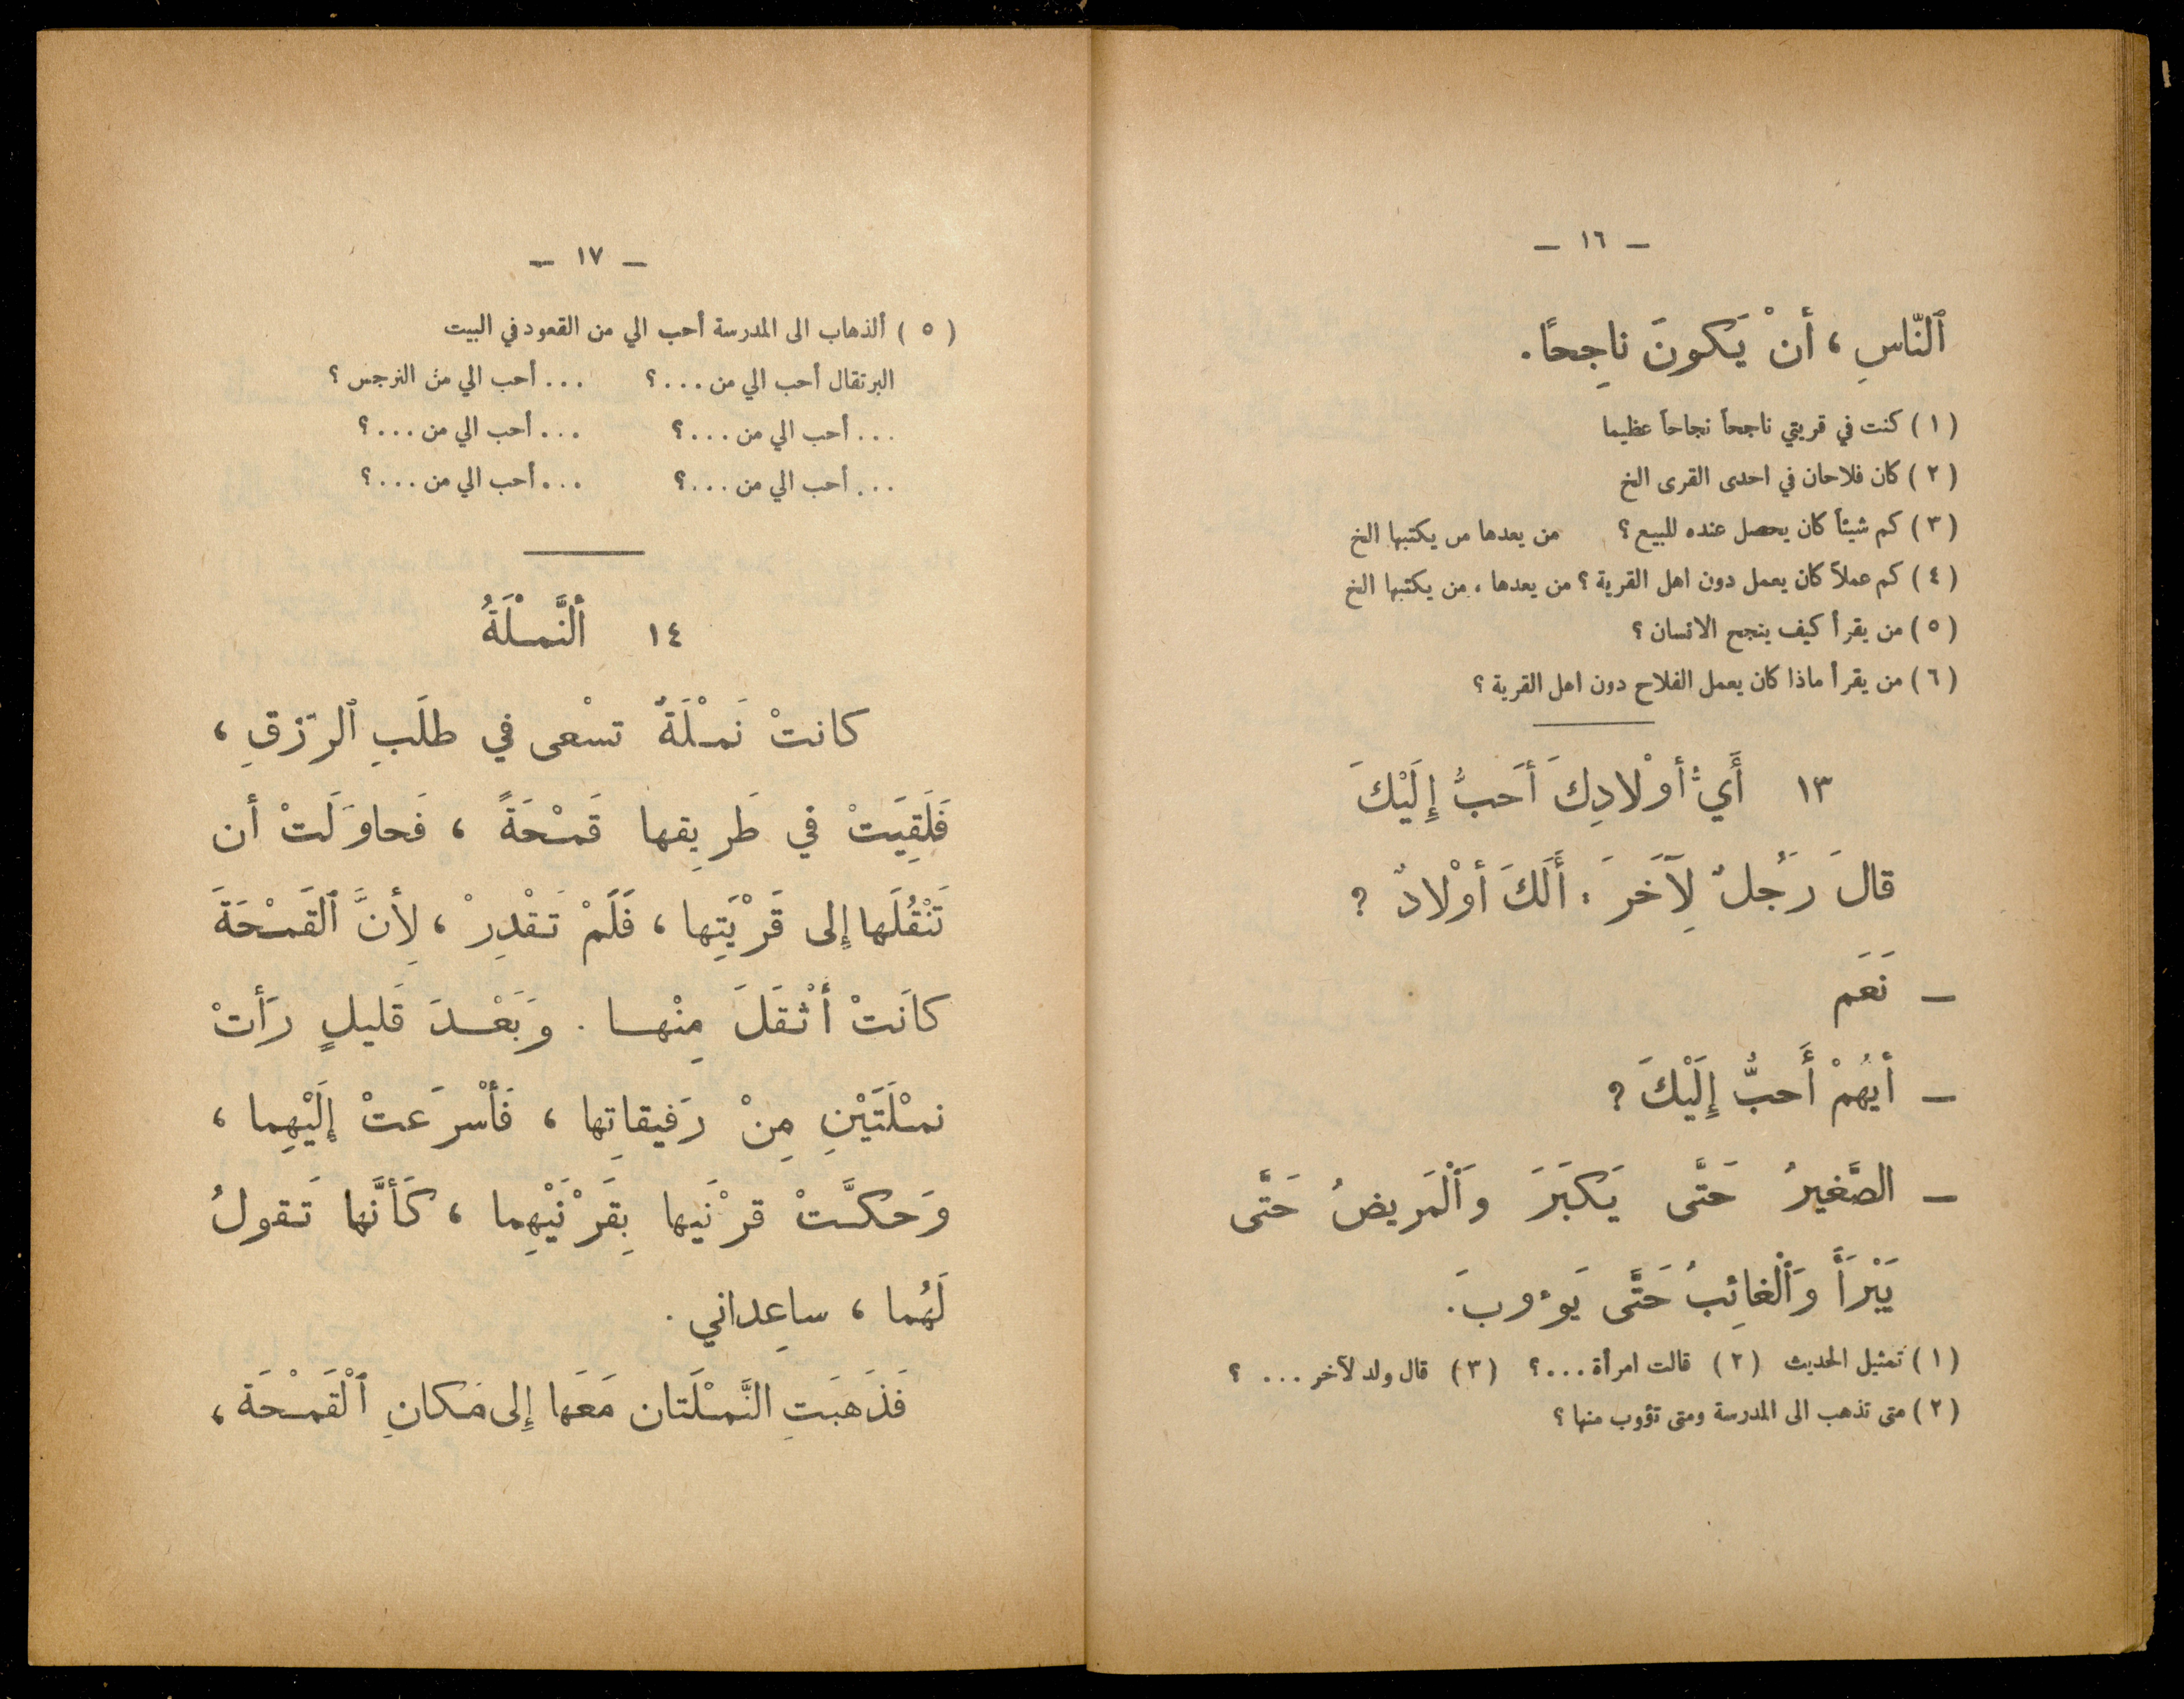 — ١٦ —
ٱلنّاسِ ، أنْ يَكونَ ناجِحًا .
( ١ ) كنت في قريتي ناجحاً نجاحاً عظيما
( ٢ ) كان فلاحان في احدى القرى الخ
( ٣ ) كم شيئاً كان يحصل عنده للبيع ؟ من يعدها من يكتبها الخ
( ٤ ) كم عملاً كان يعمل دون اهل القرية ؟ من يعدها ، من يكتبها الخ
( ٥ ) من يقرأ كيف ينجح الانسان ؟
( ٦ ) من يقرأ ماذا كان يعمل الفلاح دون اهل القرية ؟
١٣ أَيُّ أوْلادِكَ أحَبُّ إِلَيْكَ
قالَ رَجُلٌ لِآخَرَ : أَلَكَ أوْلادٌ ؟
— نَعَم
— أيُهُمْ أَحبُّ إِلَيْكَ ؟
— الصَّغيرُ حَتَّى يَكبَرَ وَٱلْمَريضُ حَتَّى
يَبْرَأَ وَٱلْغائِبُ حَتَّى يَوءوبَ .
( ١ ) تمثيل الحديث ( ٢ ) قالت امرأة . . . ؟ ( ٣ ) قال ولد لآخر . . . ؟
( ٢ ) متى تذهب الى المدرسة ومتى تؤوب منها ؟
— ١٧ —
( ٥ ) ألذهاب الى المدرسة أحب الي من القعود في البيت
البرتقال أحب الي من . . . ؟ . . . أحب الي من النرجس ؟
. . . أحب الي من . . . ؟ . . . أحب الي من . . . ؟
. . . أحب الي من . . . ؟ . . . أحب الي من . . . ؟
١٤ ألنَّمْلَةُ
كانتْ نَمْلَةٌ تسْعى في طلَبِ ٱلرّزقِ ،
فَلَقِيَتْ في طَريقِها قَمْحَةً ، فَحاوَلَتْ أن
تَنْقُلَها إِلى قَرْيَتِها ، فَلَمْ تَقْدِرْ ، لِأنَّ ٱلقَمْحَةَ
كانَتْ أثْقَلَ مِنْها . وَبَعْدَ قَليلٍ رَأتْ
نمْلَتَيْنِ مِنْ رَفيقاتِها ، فَأسْرَعتْ إِلَيْهِما ،
وَحكَّتْ قرْنَيها بِقَرْنَيْهِما ، كَأنَّها تَقولُ
لَهُما ، ساعِداني .
فَذَهبَتِ النَّمْلَتان مَعَها إِلى مَكانِ ٱلْقَمْحَة ،